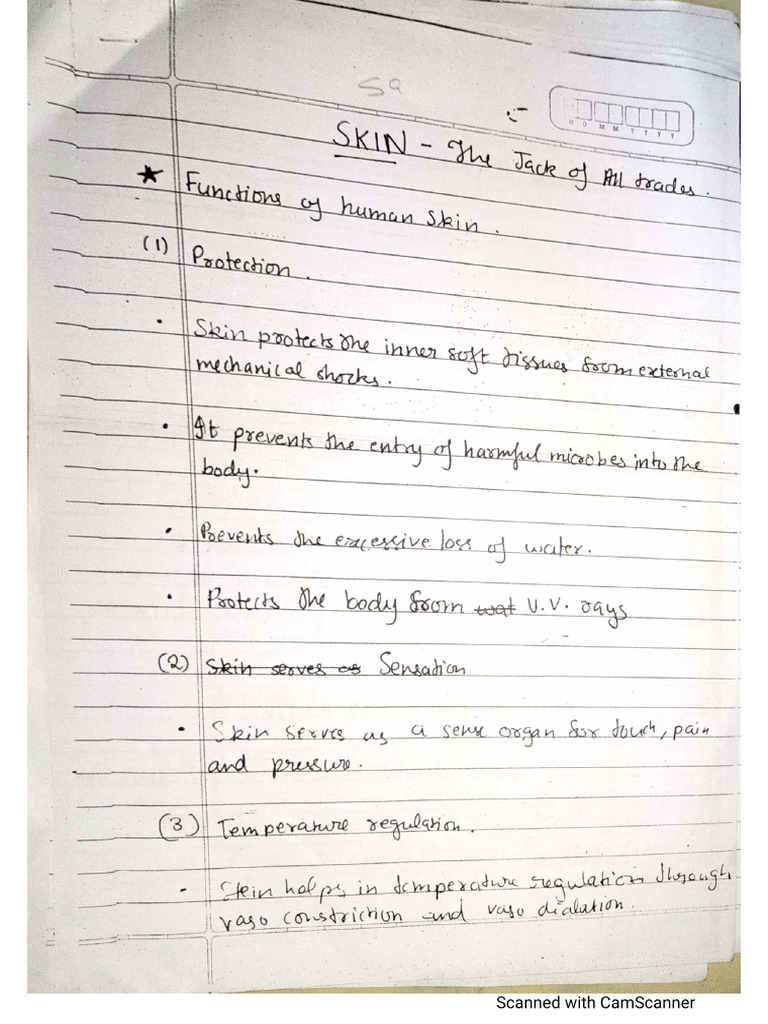 SKIN - The Jack of All trades.
★ Functions of human skin.
(1) Protection.
• Skin protects the inner soft tissues from external
mechanical shocks.
• It prevents the entry of harmful microbes into the
body.
• Prevents the excessive loss of water.
• Protects the body from wat U.V. rays
(2) Skin serves as Sensation
• Skin serves as a sense organ for touch, pain
and pressure.
(3) Temperature regulation.
- Skin helps in temperature regulation through
vaso constriction and vaso dialation.
Scanned with CamScanner